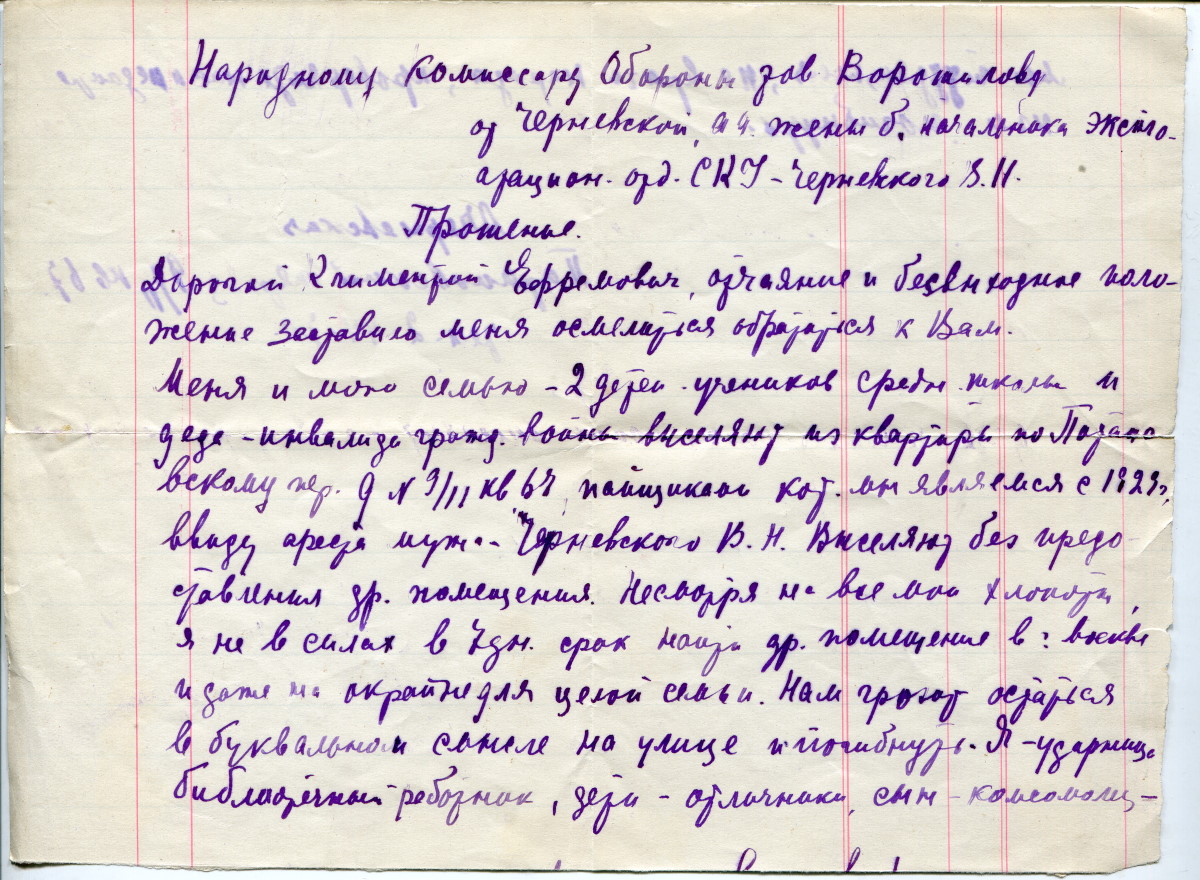 Народному Комиссару Обороны тов Ворошилову
от Черневской, жены б. начальника Эксплo-
атацион. отд. СКУ - Черневского В.Н.
Прошение.
Дорогой Климентий Ефремович, отчаяние и безвыходное поло-
жение заставило меня осмелиться обратиться к Вам.
Меня и мою семью - 2 детей учеников средн. школы и
деда - инвалида гражд. войны выселяют из квартиры по Потапо
вскому пер. д N 9/11 кв 67, пайщиками кот. мы являемся с
ввиду ареста мужа - Черневского В.Н. Выселяют без предо-
ставления др. помещения. Несмотря на все мои хлопоты,
я не в силах в 7 дн. срок найти др. помещение в г. Москве
и даже на окраине для целой семьи. Нам грозит остаться
в буквальном смысле на улице и погибнуть. Я - ударница
библиотечный работник, дети - отличники, сын - комсомолец -